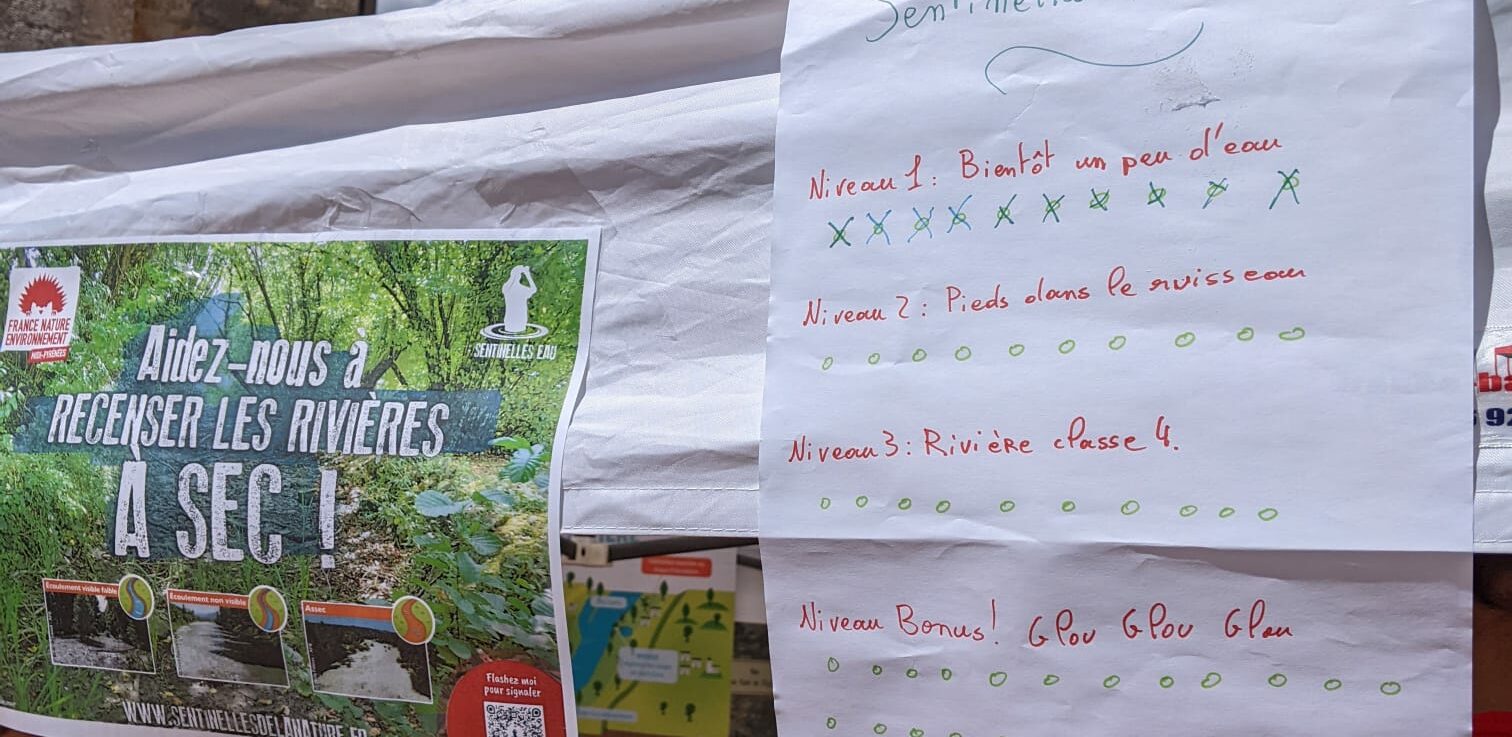 FRANCE NATURE
ENVIRONNEMENT
MIDI-PYRÉNÉES
SENTINELLES EAU
Aidez-nous à
RECENSER LES RIVIÈRES
À SEC !
Ecoulement visible faible
Ecoulement non visible
Assec
Flashez moi
pour signaler
WWW.SENTINELLESDELANATURE.FR
Niveau 1 : Bientôt un peu d'eau
Niveau 2 : Pieds dans le ruisseau
Niveau 3 : Rivière classe 4.
Niveau Bonus ! Glou Glou Glou